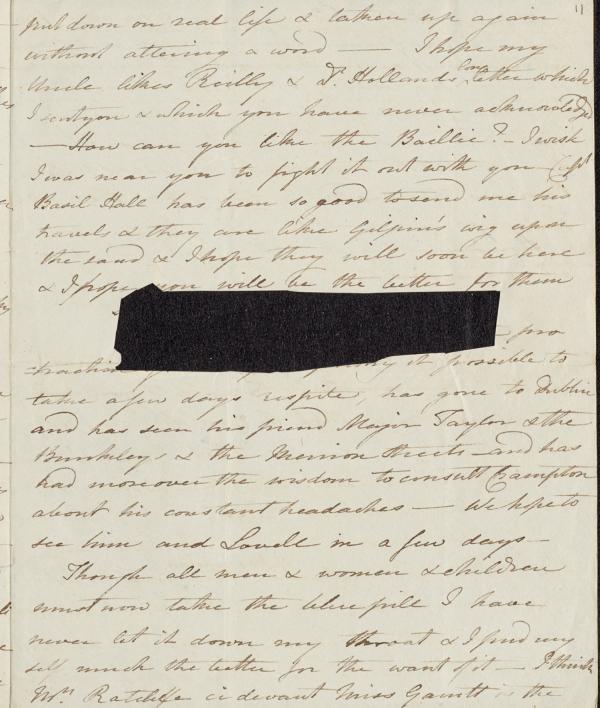 11
put down on real life & taken up again
without altering a word — I hope my
Uncle likes Reilly & Dr. Hollands long letter which
I sent you & which you have never acknowledged
— How can you like the Baillie? — I wish
I was near you to fight it out with you
Basil Hall has been so good to send me his
travels & they are like Gilpin's wig upon
the road & I hope they will soon be here
& I hope you will be the better for them
pro
traction it possible to
take a few days respite, has gone to Dublin
and has seen his friend Major Taylor & the
& the Merrion Streets — and has
had moreover the wisdom to consult Crampton
about his constant headaches — We hope to
see him and Lovell in a few days —
Though all men & women & children
must now take the blue pill I have
never let it down my throat & I find my
self much the better for the want of it — I think
Mrs. Ratcliffe ci devant Miss is the